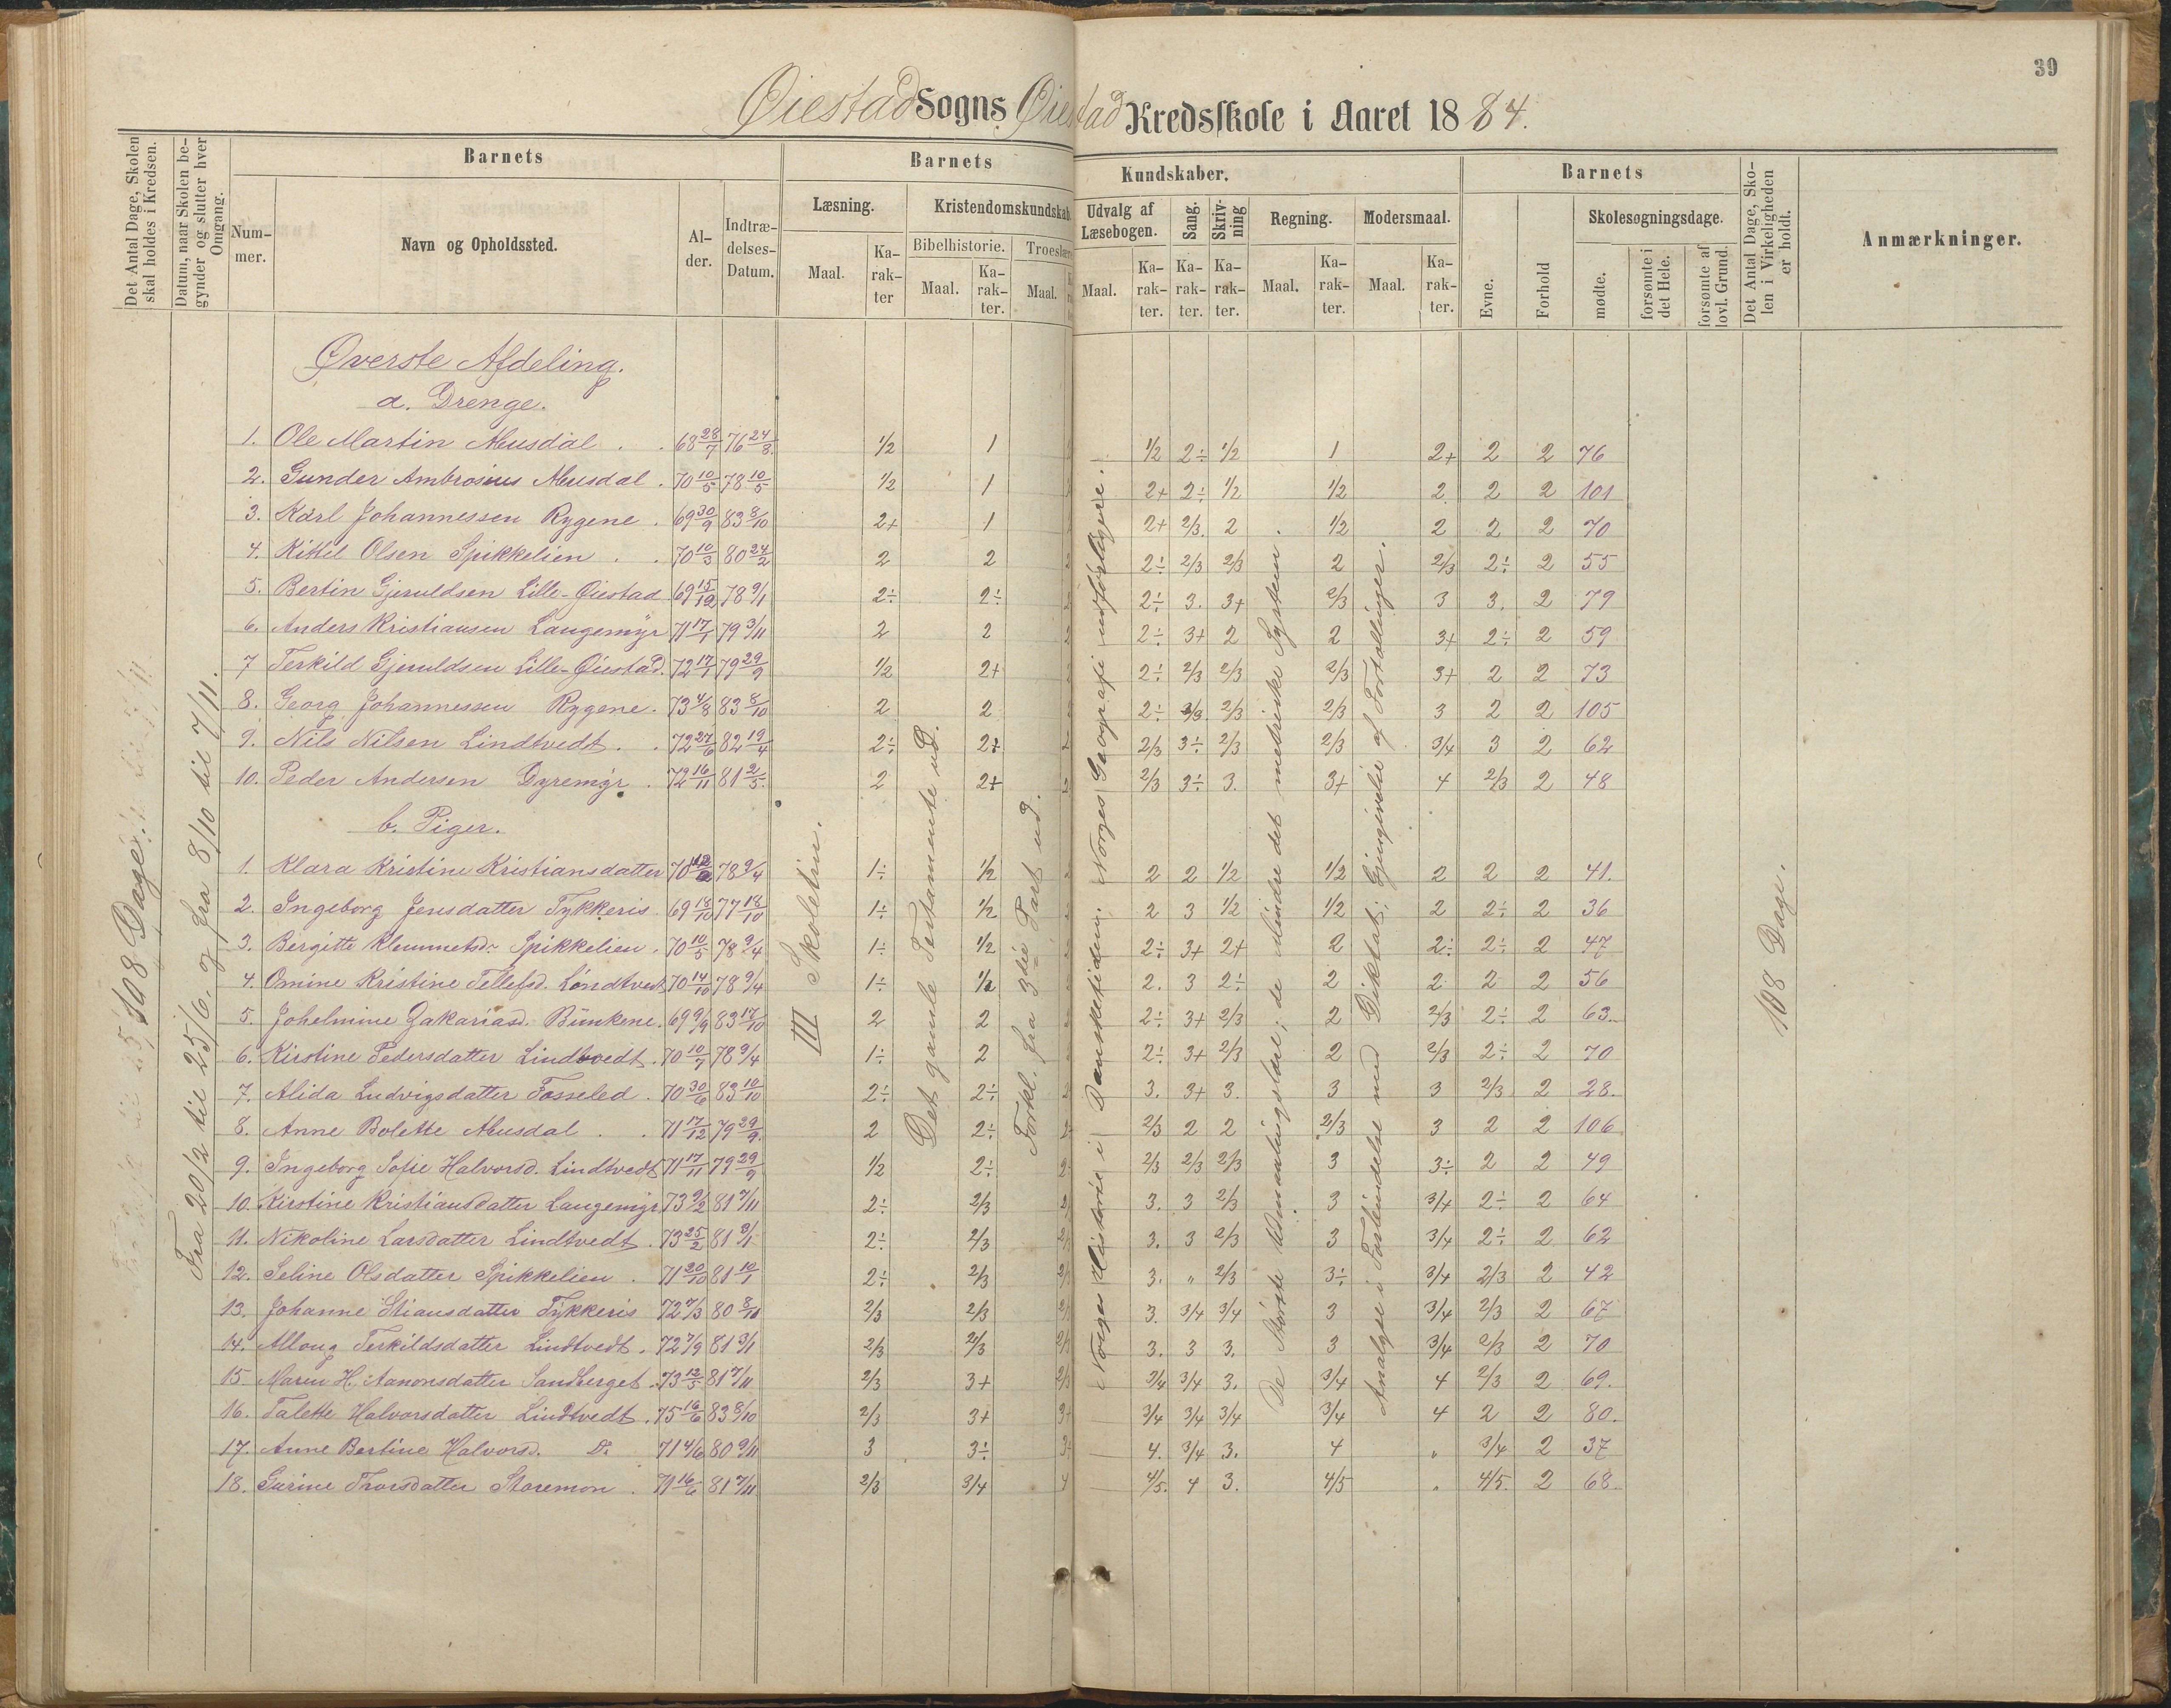 39
Øiestad Sogns Øiestad Kredsskole i Aaret 1884.
Det Antal Dage, Skolen skal holdes i Kredsen.
Datum, naar Skolen begynder og slutter hver Omgang.
Barnets
Nummer.
Navn og Opholdssted.
Alder.
Indtrædelses-Datum.
Barnets Kundskaber.
Læsning.
Maal.
Karakter
Kristendomskundskab
Bibelhistorie.
Maal.
Karakter.
Troeslære
Maal.
Udvalg af Læsebogen.
Maal.
Karakter.
Sang.
Karakter.
Skrivning
Karakter.
Regning.
Maal.
Karakter.
Modersmaal.
Maal.
Karakter.
Barnets
Evne.
Forhold
Skolesøgningsdage.
mødte.
forsømte i det Hele.
forsømte af lovl. Grund.
Det Antal Dage, Skolen i Virkeligheden er holdt.
Anmærkninger.
108 Dage.
Fra 20/2 til 25/6 og fra 8/10 til 7/11.
III Skoletrin.
Det gamle Testamente ud.
Forkl. fra 3die Part ud.
Norges Historie i Dansketiden. Norges Geografi udførligere.
De største Udmaalingstal; de mindre det metriske System.
Analyse i Forbindelse med Diktat; Gjengivelse af Fortællinger.
108 Dage.
Øverste Afdeling.
a. Drenge.
1. Ole Martin Messdal . . 68 28/7 76 24/8 1/2 1 1/2 2÷ 1/2 1 2+ 2 2 76
2. Gunder Ambrosius Messdal . 70 10/5 78 10/5 1/2 1 2+ 2÷ 1/2 1/2 2 2 2 101
3. Karl Johannessen Rygene . 69 30/9 83 8/10 2+ 1 2+ 2/3 2 1/2 2 2 2 70
4. Kittil Olsen Spikkelien . . 70 10/3 80 24/2 2 2 2÷ 2/3 2/3 2 2/3 2÷ 2 55
5. Bertin Gjeruldsen Lille-Øiestad 69 15/12 78 9/1 2÷ 2÷ 2÷ 3. 3+ 2/3 3 3. 2 79
6. Anders Kristiansen Langemyr 71 17/1 79 3/11 2 2 2÷ 3+ 2 2 3+ 2÷ 2 59
7 Terkild Gjeruldsen Lille-Øiestad. 72 17/1 79 29/9 1/2 2+ 2÷ 2/3 2/3 2/3 3+ 2 2 73
8. Georg Johannessen Rygene. 73 4/8 83 8/10 2 2 2÷ 2/3 2/3 2/3 3 2 2 105
9. Nils Nilsen Lindtvedt . . 72 27/6 82 19/4 2÷ 2+ 2/3 3÷ 2/3 2/3 3/4 3 2 62
10. Peder Andersen Dyremyr . 72 16/11 81 2/5 2 2+ 2/3 3÷ 3. 3+ 4 2/3 2 48
b. Piger.
1. Klara Kristine Kristiansdatter 70 78 9/4 1÷ 1/2 2 2 1/2 1/2 2 2 2 41.
2. Ingeborg Jensdatter Tykkeris 69 18/10 77 18/10 1÷ 1/2 2 3 1/2 1/2 2 2÷ 2 36
3. Birgitte Klemmetsdr. Spikkelien . 70 10/5 78 9/4 1÷ 1/2 2÷ 3+ 2+ 2 2÷ 2÷ 2 47
4. Omine Kristine Tellefsd. Lindtvedt 70 14/10 78 9/4 1÷ 1/2 2. 3 2÷ 2 2 2 2 56
5. Johelmine Zakariasd. Bünkene. 69 9/9 83 17/10 2 2 2÷ 3+ 2/3 2 2/3 2÷ 2 63
6. Kirstine Pedersdatter Lindtvedt . 70 10/7 78 9/4 1÷ 2 2÷ 3+ 2/3 2 2/3 2÷ 2 70
7. Alida Ludvigsdatter Fosseled . 70 30/6 83 10/10 2÷ 2÷ 3. 3+ 3. 3 3 2/3 2 28.
8. Anne Bolette Messdal . . 71 17/12 79 29/9 2 2÷ 2/3 2 2 2/3 3 2 2 106
9. Ingeborg Sofie Halvorsd. Lindtvedt 71 17/11 79 29/9 1/2 2÷ 2/3 2/3 2/3 3 3÷ 2 2 49
10. Kirstine Kristiansdatter Langemyr 73 9/2 81 7/11 2÷ 2/3 3. 3 2/3 3 3/4 2÷ 2 64
11. Nikoline Larsdatter Lindtvedt . 73 25/2 81 3/1 2÷ 2/3 3. 3 2/3 3 3/4 2÷ 2 62
12. Seline Olsdatter Spikkelien . 71 20/10 81 10/1 2÷ 2/3 3. " 2/3 3÷ 3/4 2/3 2 42
13. Johanne Stiansdatter Tykkeris 72 7/3 80 8/11 2/3 2/3 3. 3/4 3/4 3 3/4 2/3 2 67
14. Alloug Terkildsdatter Lindtvedt . 72 7/9 81 3/1 2/3 2/3 3. 3 3. 3 3/4 2/3 2 70
15 Maren H. Aanonsdatter Sandberget . 73 12/5 81 7/11 2/3 3+ 3/4 3/4 3. 3/4 4 2/3 2 69.
16. Talette Halvorsdatter Lindtvedt . 75 16/6 83 8/10 2/3 3+ 3/4 3/4 3/4 3/4 4 2 2 80.
17. Anne Bertine Halvorsd. Do 71 4/6 80 9/11 3 3÷ 4. 3/4 3. 4 " 3/4 2 37
18. Gurine Thorsdatter Storemon . 71 16/6 81 7/11 2/3 3/4 4/5. 4 3. 4/5 " 4/5. 2 68